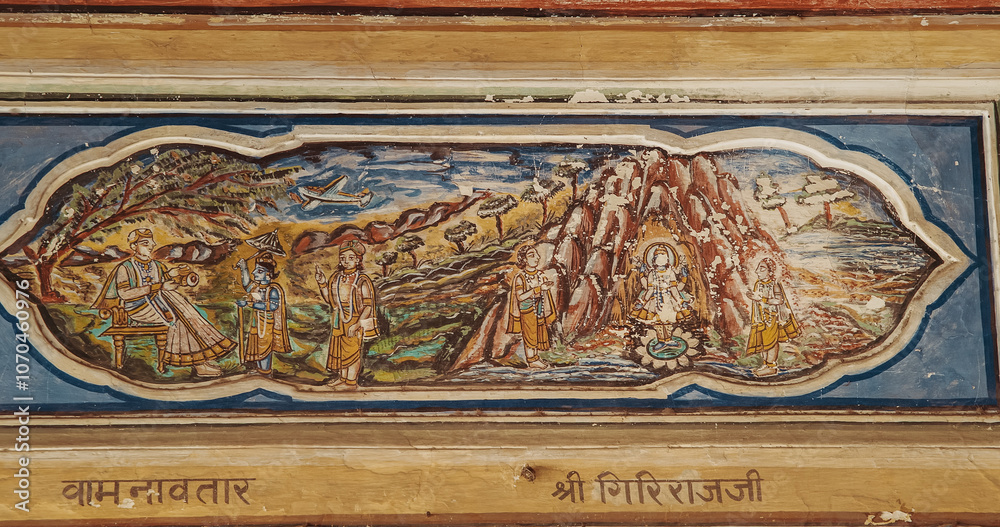 वामनावतार श्री गिरिराजजी
Adobe Stock | #1070460976